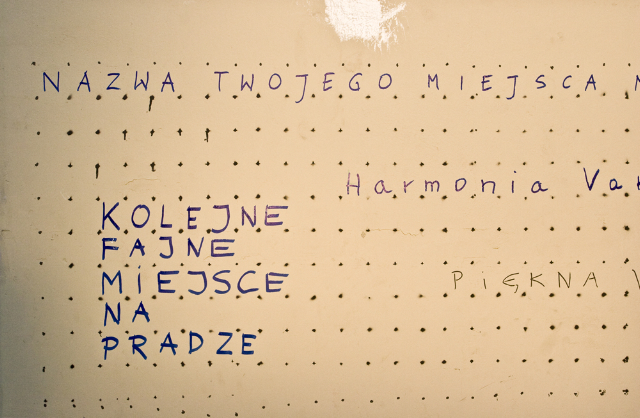 NAZWA TWOJEGO MIEJSCA
Harmonia
KOLEJNE
FAJNE
MIEJSCE
NA
PRADZE
PiĘKNA